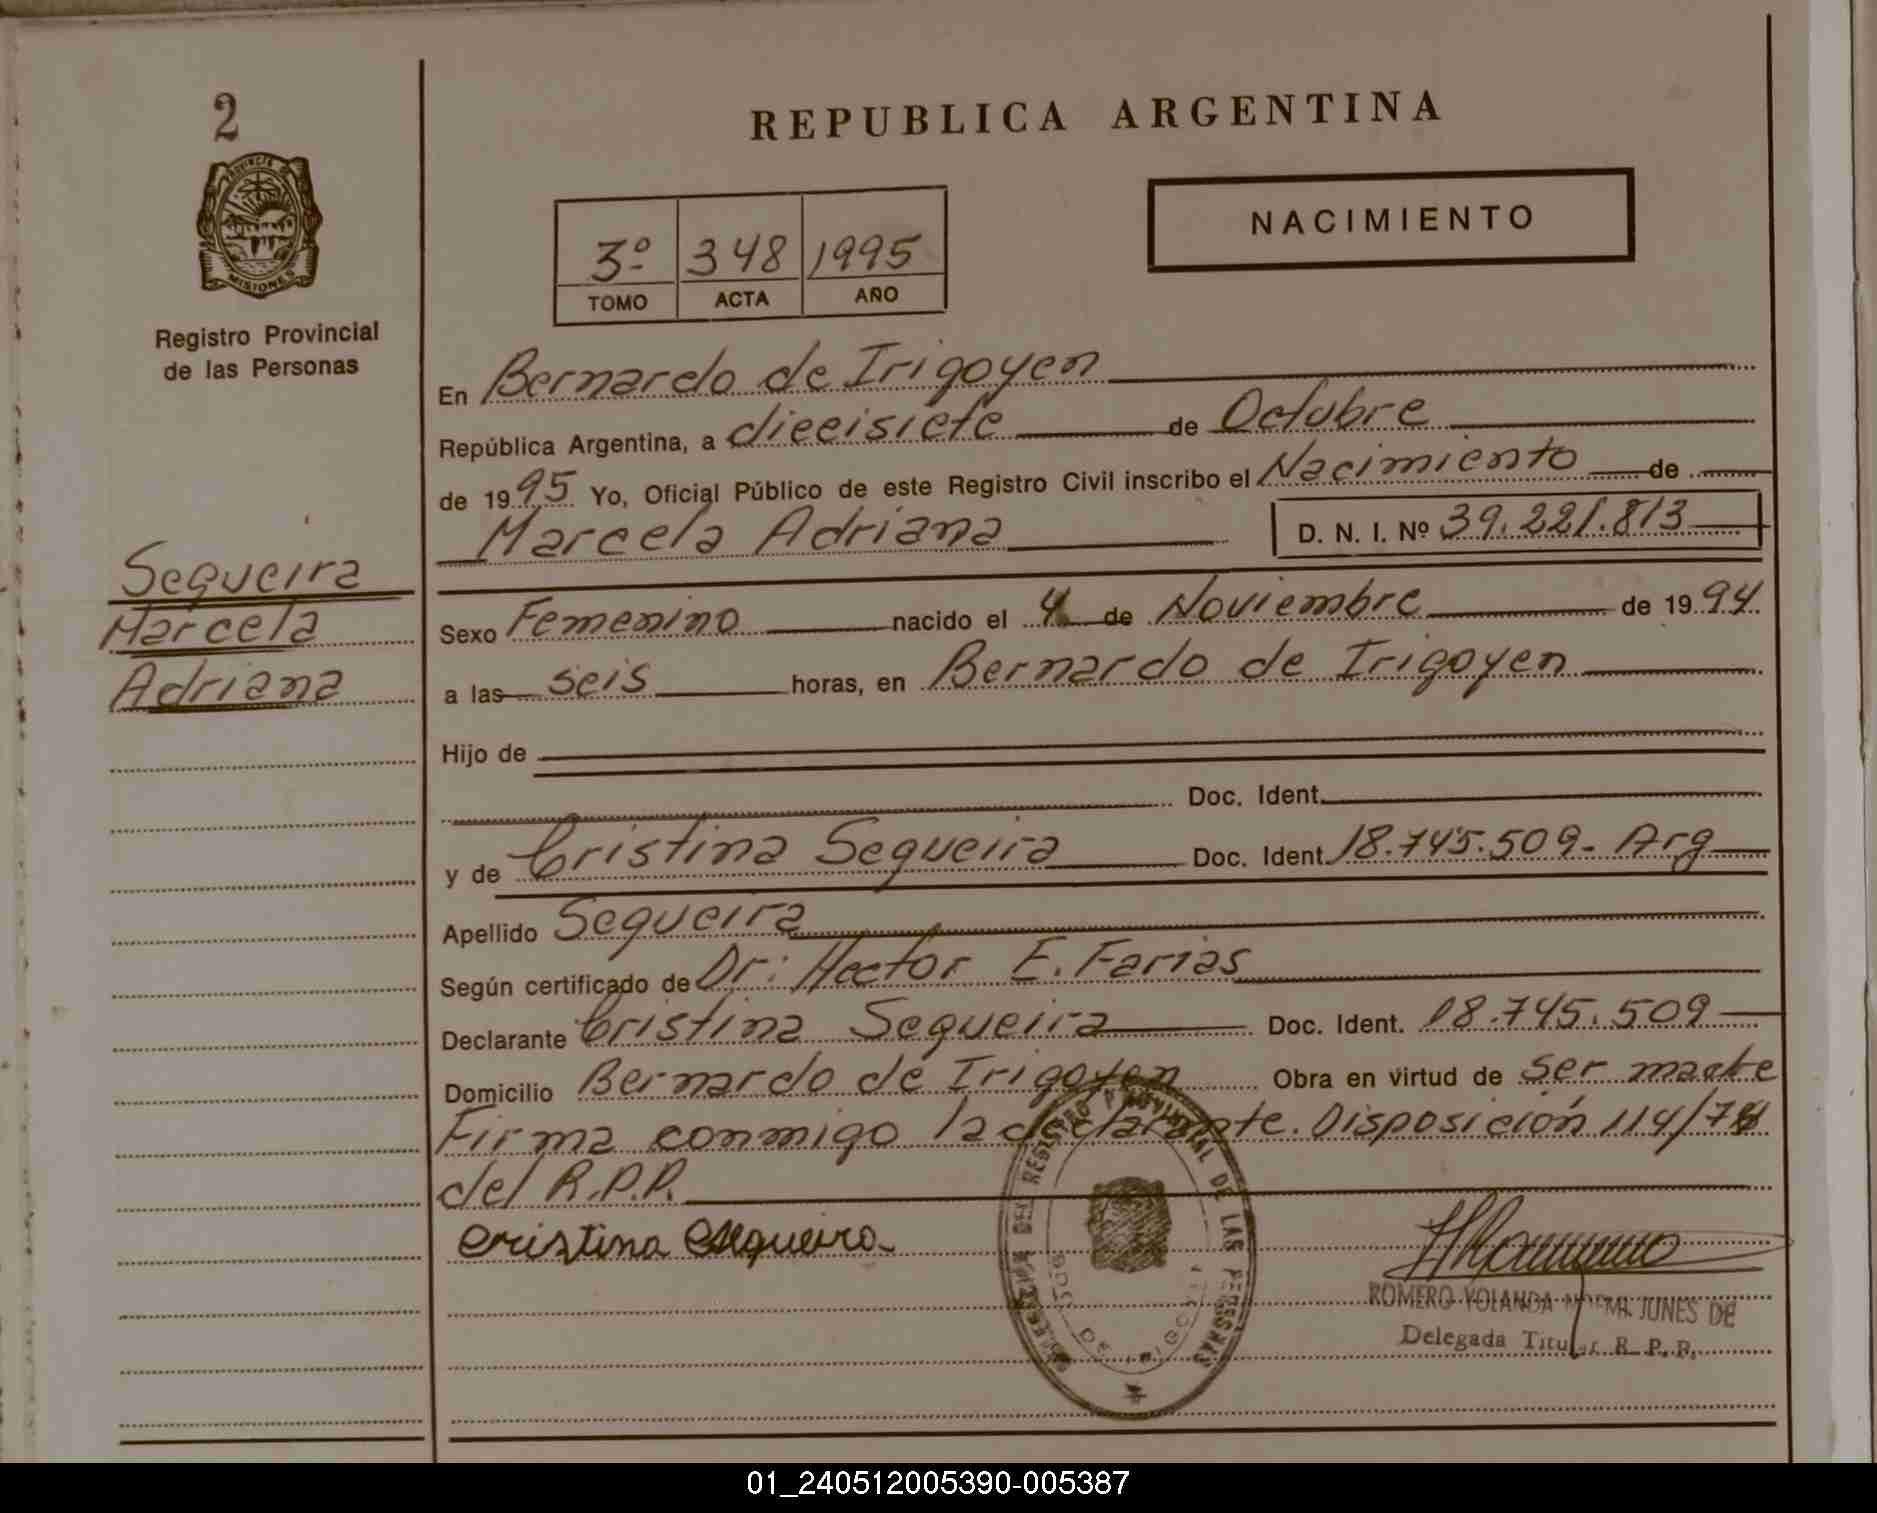 2
PROVINCIA DE
MISIONES
Registro Provincial
de las Personas
Sequeira
Marcela
Adriana
REPUBLICA ARGENTINA
3º 348 1995
TOMO ACTA AÑO
NACIMIENTO
En Bernardo de Irigoyen
República Argentina, a diecisiete de Octubre
de 1995 Yo, Oficial Público de este Registro Civil inscribo el Nacimiento de
Marcela Adriana D. N. I. Nº 39.221.813
Sexo Femenino nacido el 4 de Noviembre de 1994
a las seis horas, en Bernardo de Irigoyen
Hijo de
Doc. Ident.
y de Cristina Sequeira Doc. Ident. 18.745.509- Arg
Apellido Sequeira
Según certificado de Dr: Hector E. Farias
Declarante Cristina Sequeira Doc. Ident. 18.745.509
Domicilio Bernardo de Irigoyen Obra en virtud de ser madre
Firma conmigo la declarante. Disposición 114/78
del R.P.P.
Cristina Sequeira
DEL REGISTRO PROVINCIAL DE LAS PERSONAS
DE IRIGOYEN
ROMERO YOLANDA NOEMI JUNES DE
Delegada Titular R. P. P.
01_240512005390-005387